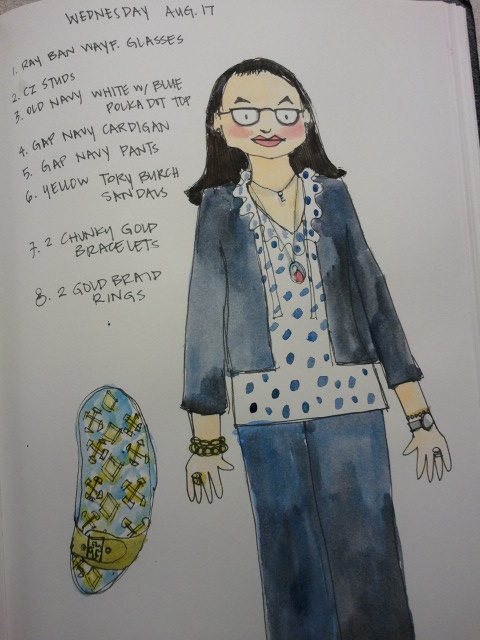 WEDNESDAY AUG. 17
1. RAY BAN WAYF. GLASSES
2. CZ STUDS
3. OLD NAVY WHITE W/ BLUE
POLKA DOT TOP
4. GAP NAVY CARDIGAN
5. GAP NAVY PANTS
6. YELLOW TORY BURCH
SANDALS
7. 2 CHUNKY GOLD
BRACELETS
8. 2 GOLD BRAID
RINGS